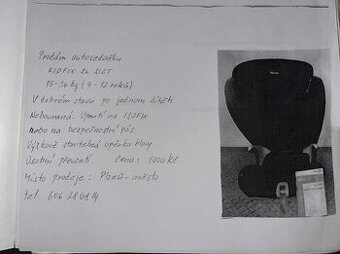 Prodám autosedačku
KIDFIX SL SICT
15-36 kg (4-12 roků)
V dobrém stavu po jednom dítěti
Nebouraná. Upnutí na ISOFIX
nebo na bezpečnostní pás
Výškově stavitelná opěrka hlavy
Osobní převzetí cena: 1000 Kč.
Místo prodeje: Plzeň-město
tel 606 280814